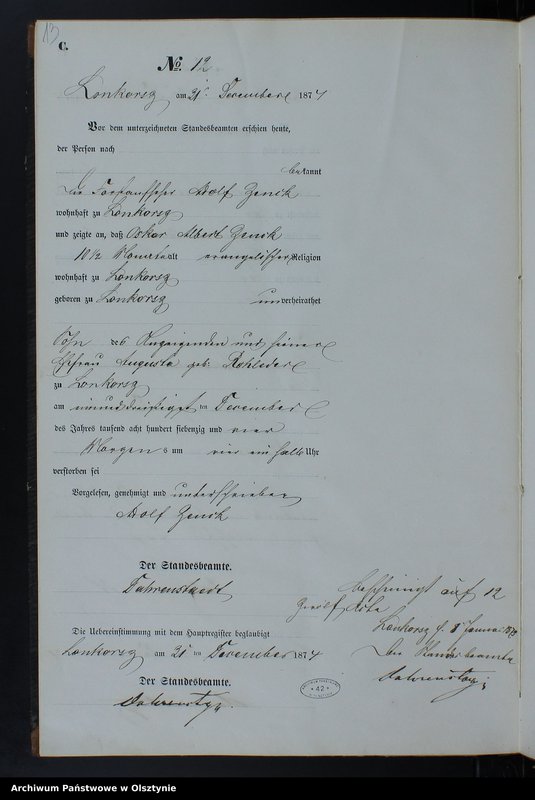 13
C.
No. 12
Lonkorsz am 21ten December 1874
Vor dem unterzeichneten Standesbeamten erschien heute,
der Person nach
bekannt
der Adolf Zenck
wohnhaft zu Lonkorsz
und zeigte an, daß Oskar Albert Zenck
10 1/2 Monat alt evangelischer Religion
wohnhaft zu Lonkorsz
geboren zu Lonkorsz unverheirathet
Sohn des Anzeigenden und seiner
Ehefrau Auguste geb. Rohleder
zu Lonkorsz
am ten December
des Jahres tausend acht hundert siebenzig und vier
Morgens um vier ein halb Uhr
verstorben sei
Vorgelesen, genehmigt und unterschrieben
Adolf Zenck
Der Standesbeamte.
Die Uebereinstimmung mit dem Hauptregister beglaubigt
Lonkorsz am ten December 1874
Der Standesbeamte.
auf 12
Lonkorsz d. Januar
Der Standesbeamte
42
Archiwum Państwowe w Olsztynie